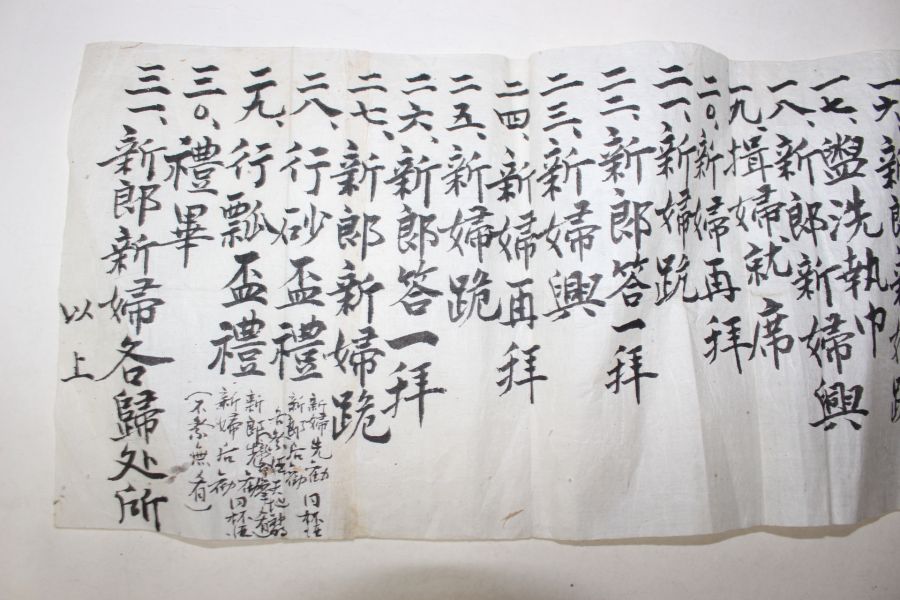 一六、新郎新婦跪
一七、盥洗執巾
一八、新郎新婦興
一九、揖婦就席
二〇、新婦再拜
二一、新婦跪
二二、新郎答一拜
二三、新婦興
二四、新婦再拜
二五、新婦跪
二六、新郎答一拜
二七、新郎新婦跪
二八、行砂盃禮
新婦先勸
新郎后勸
二九、行瓢盃禮
新郎先勸
新婦后勸
(不祭無肴)
三〇、禮畢
三一、新郎新婦各歸处所
以上